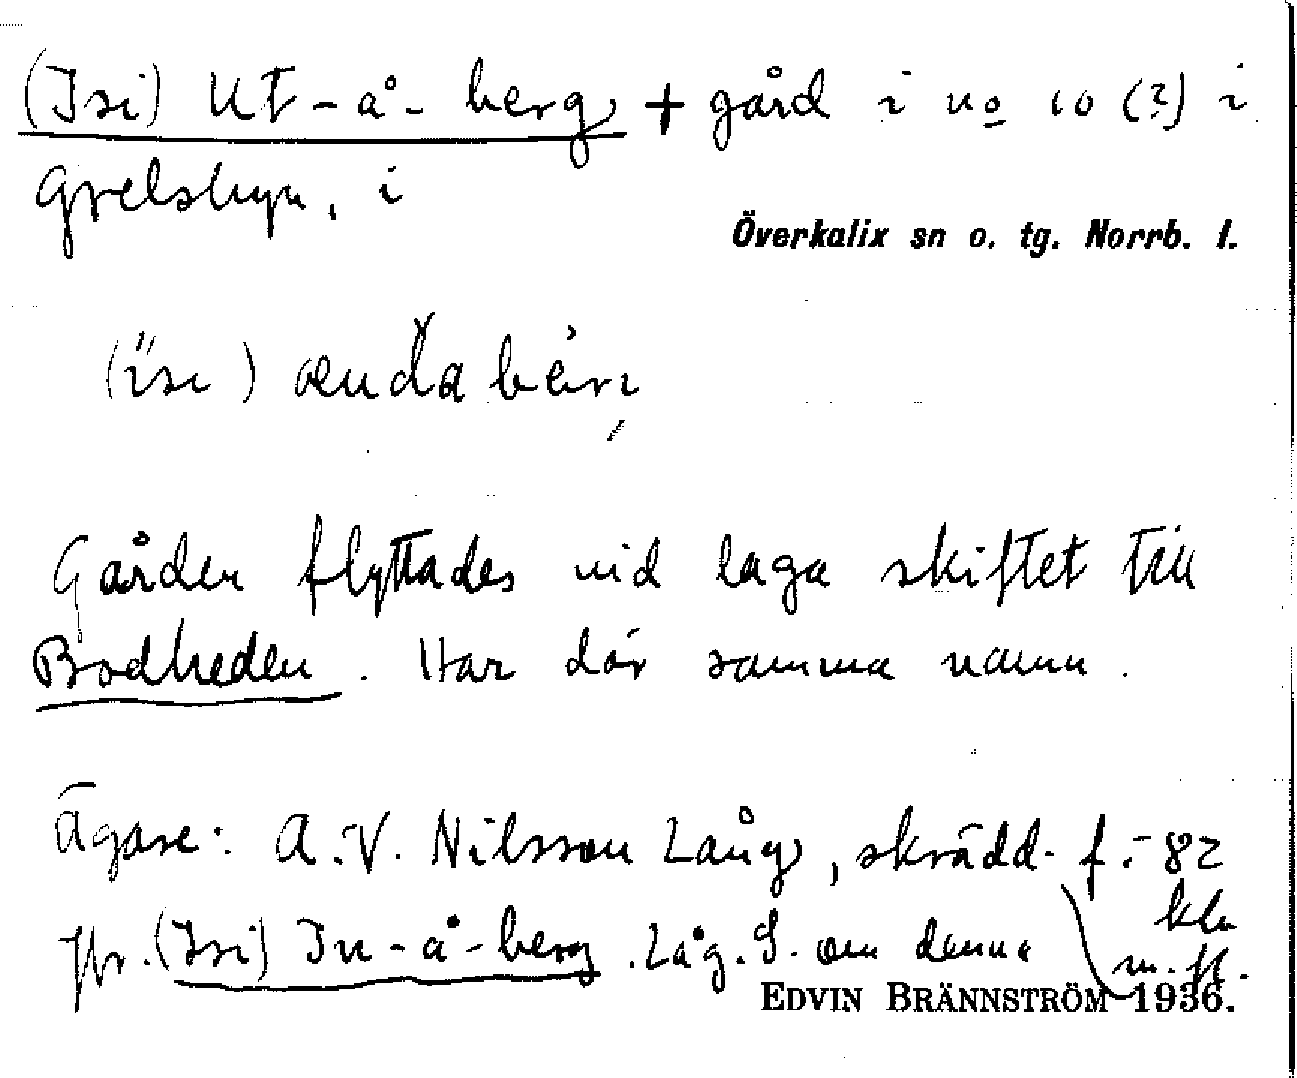 (Isi) Ut-å-berg + gård i no 10 (?) i
Grelsbyn, i
Överkalix sn o. tg. Norrb. l.
Gården flyttades vid laga skiftet till
Bodheden. Har där samma namn.
Ägare: A.V. Nilsson Lång, skrädd. f.-82
m. fl.
Jfr. (Isi) In-å-berg. Låg. S. om denna
EDVIN BRÄNNSTRÖM 1936.